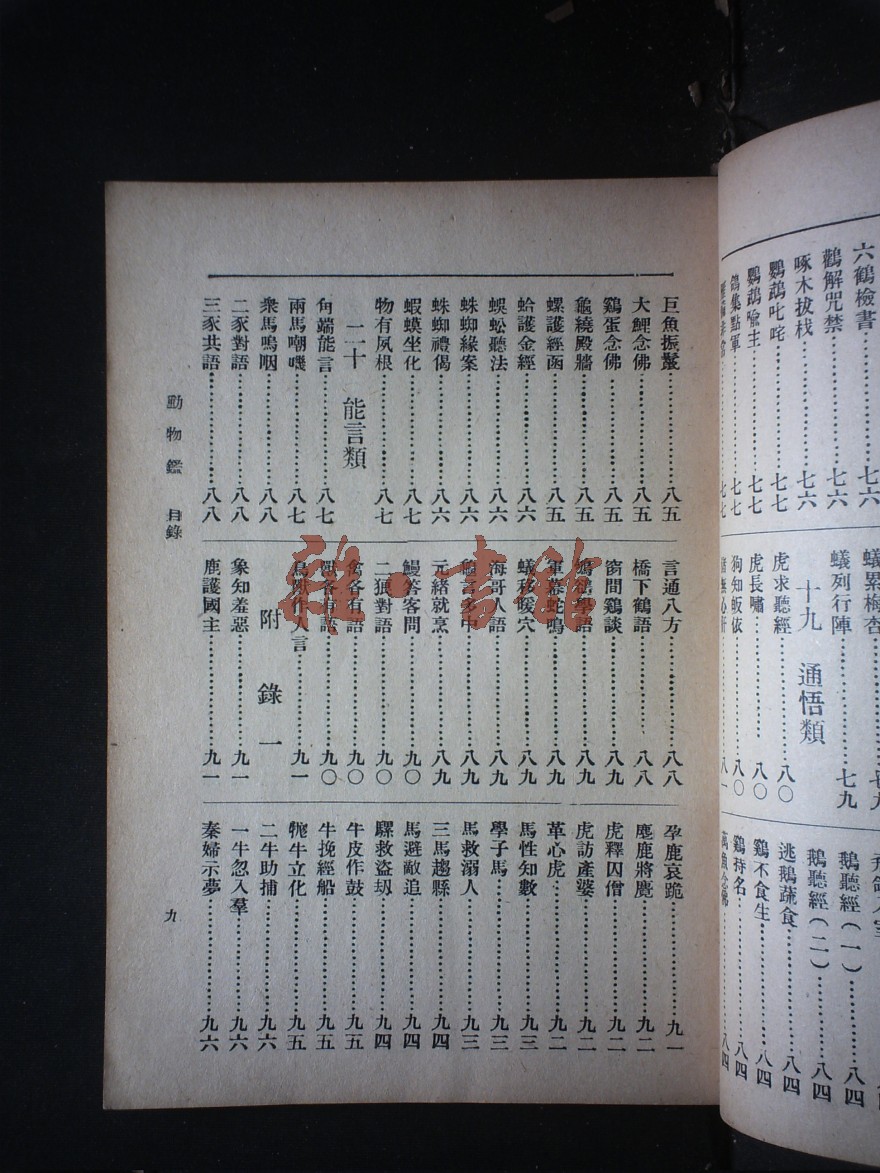 六鶴檢書……七六
鸛解咒禁
啄木拔栈……七六
鸚鵡叱咤……七七
鸚鵡喩主……七七
鴿集點軍……七七
七七
蟻累梅杏……七九
蟻列行陣……七九
十九 通悟類
虎求聽經……八〇
虎長嘯……八〇
狗知皈依……八〇
八一
鵝聽經(一)……八四
鵝聽經(二)……八四
逃鵝蔬食……八四
鷄不食生……八四
鷄持名……八四
八四
巨魚振鬣……八五
大鯉念佛……八五
鷄蛋念佛……八五
龜繞殿牆……八五
螺護經函……八五
蛤護金經……八六
蜈蚣聽法……八六
蛛蜘緣案……八六
蛛蜘禮偈……八六
蝦蟆坐化……八七
物有夙根……八七
二十 能言類
角端能言……八七
兩馬嘲嘰……八七
衆馬嗚咽……八八
二豕對語……八八
三豕共語……八八
言通八方……八八
橋下鶴語……八八
窗間鷄談……八九
學語……八九
軍幕蛇鳴……八九
蟻移暖穴……八九
海哥人語……八九
言多中……八九
元緖就烹……八九
鰻答客問……九〇
二狼對語……九〇
禽各有語……九〇
獸各有語……九〇
鳥獸作人言……九一
附錄一
象知羞惡……九一
鹿護國主……九一
孕鹿哀跪……九一
麈鹿將麑……九二
虎釋囚僧……九二
虎訪產婆……九二
革心虎……九二
馬性知數……九三
學子馬……九三
馬救溺人……九三
三馬趨縣……九四
馬避敵追……九四
騾救盜刧……九四
牛皮作鼓……九五
牛挽經船……九五
牠牛立化……九五
二牛助捕……九六
一牛忽入羣……九六
秦婦示夢……九六
動物鑑 目錄
九
雜·書館